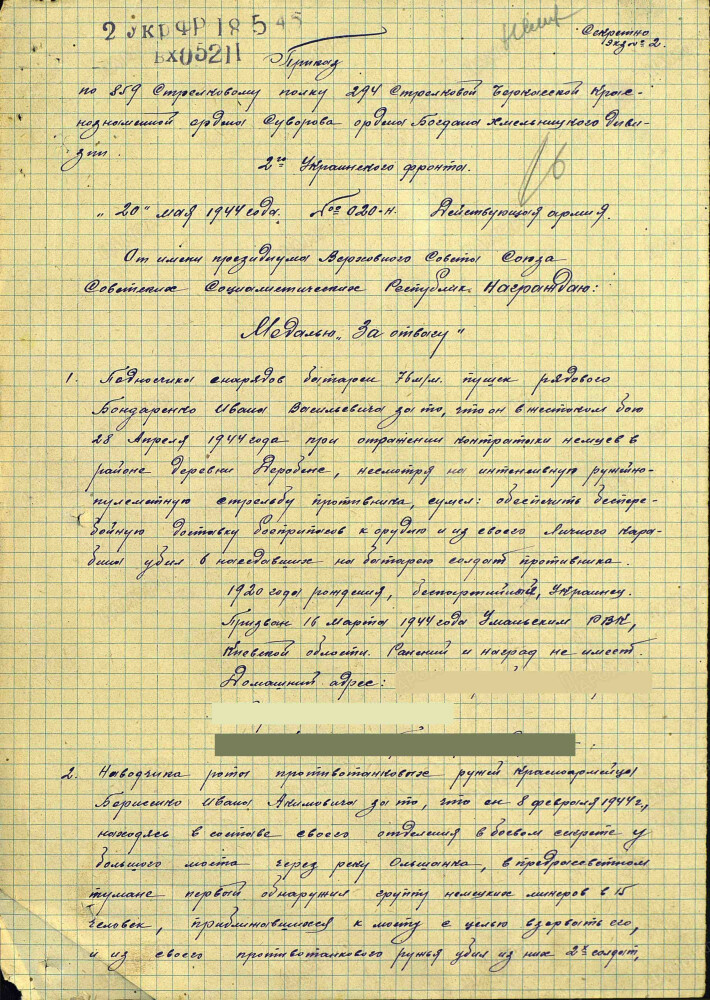 2 УКР ФР 18 5 45
ВХ05211
Секретно
Экз № 2.
Приказ
по 859 Стрелковому полку 294 Стрелковой Черкасской Крас-
нознаменной ордена Суворова ордена Богдана Хмельницкого диви-
зии.
2го Украинского фронта.
"20" мая 1944 года. №020-н. Действующая армия.
От имени президиума Верховного Совета Союза
Советских Социалистических Республик Награждаю:
Медалью "За отвагу"
1. Подносчика снарядов батареи 76 м/м. пушек рядового
Бондаренко Ивана Васильевича за то, что он в жестоком бою
28 Апреля 1944 года при отражении контратаки немцев в
районе деревни, несмотря на интенсивную ружейно-
пулеметную стрельбу противника, сумел: обеспечить беспере-
бойную доставку боеприпасов к орудию и из своего личного кара-
бина убил 6 наседавших на батарею солдат противника.
1920 года рождения, беспартийный, Украинец.
Призван 16 Марта 1944 года Уманьским РВК,
Киевской области. Ранений и наград не имеет.
Домашний адрес:
2. Наводчика роты противотанковых ружей Красноармейца
Борисенко Ивана Акимовича за то, что он 8 февраля 1944 г.,
находясь в составе своего отделения в боевом секрете у
большого моста через реку Ольшанка, в предрассветном
тумане первый обнаружил группу немецких минеров в 15
человек, приближавшихся к мосту с целью взорвать его,
и из своего противотанкового ружья убил из них 2х солдат,